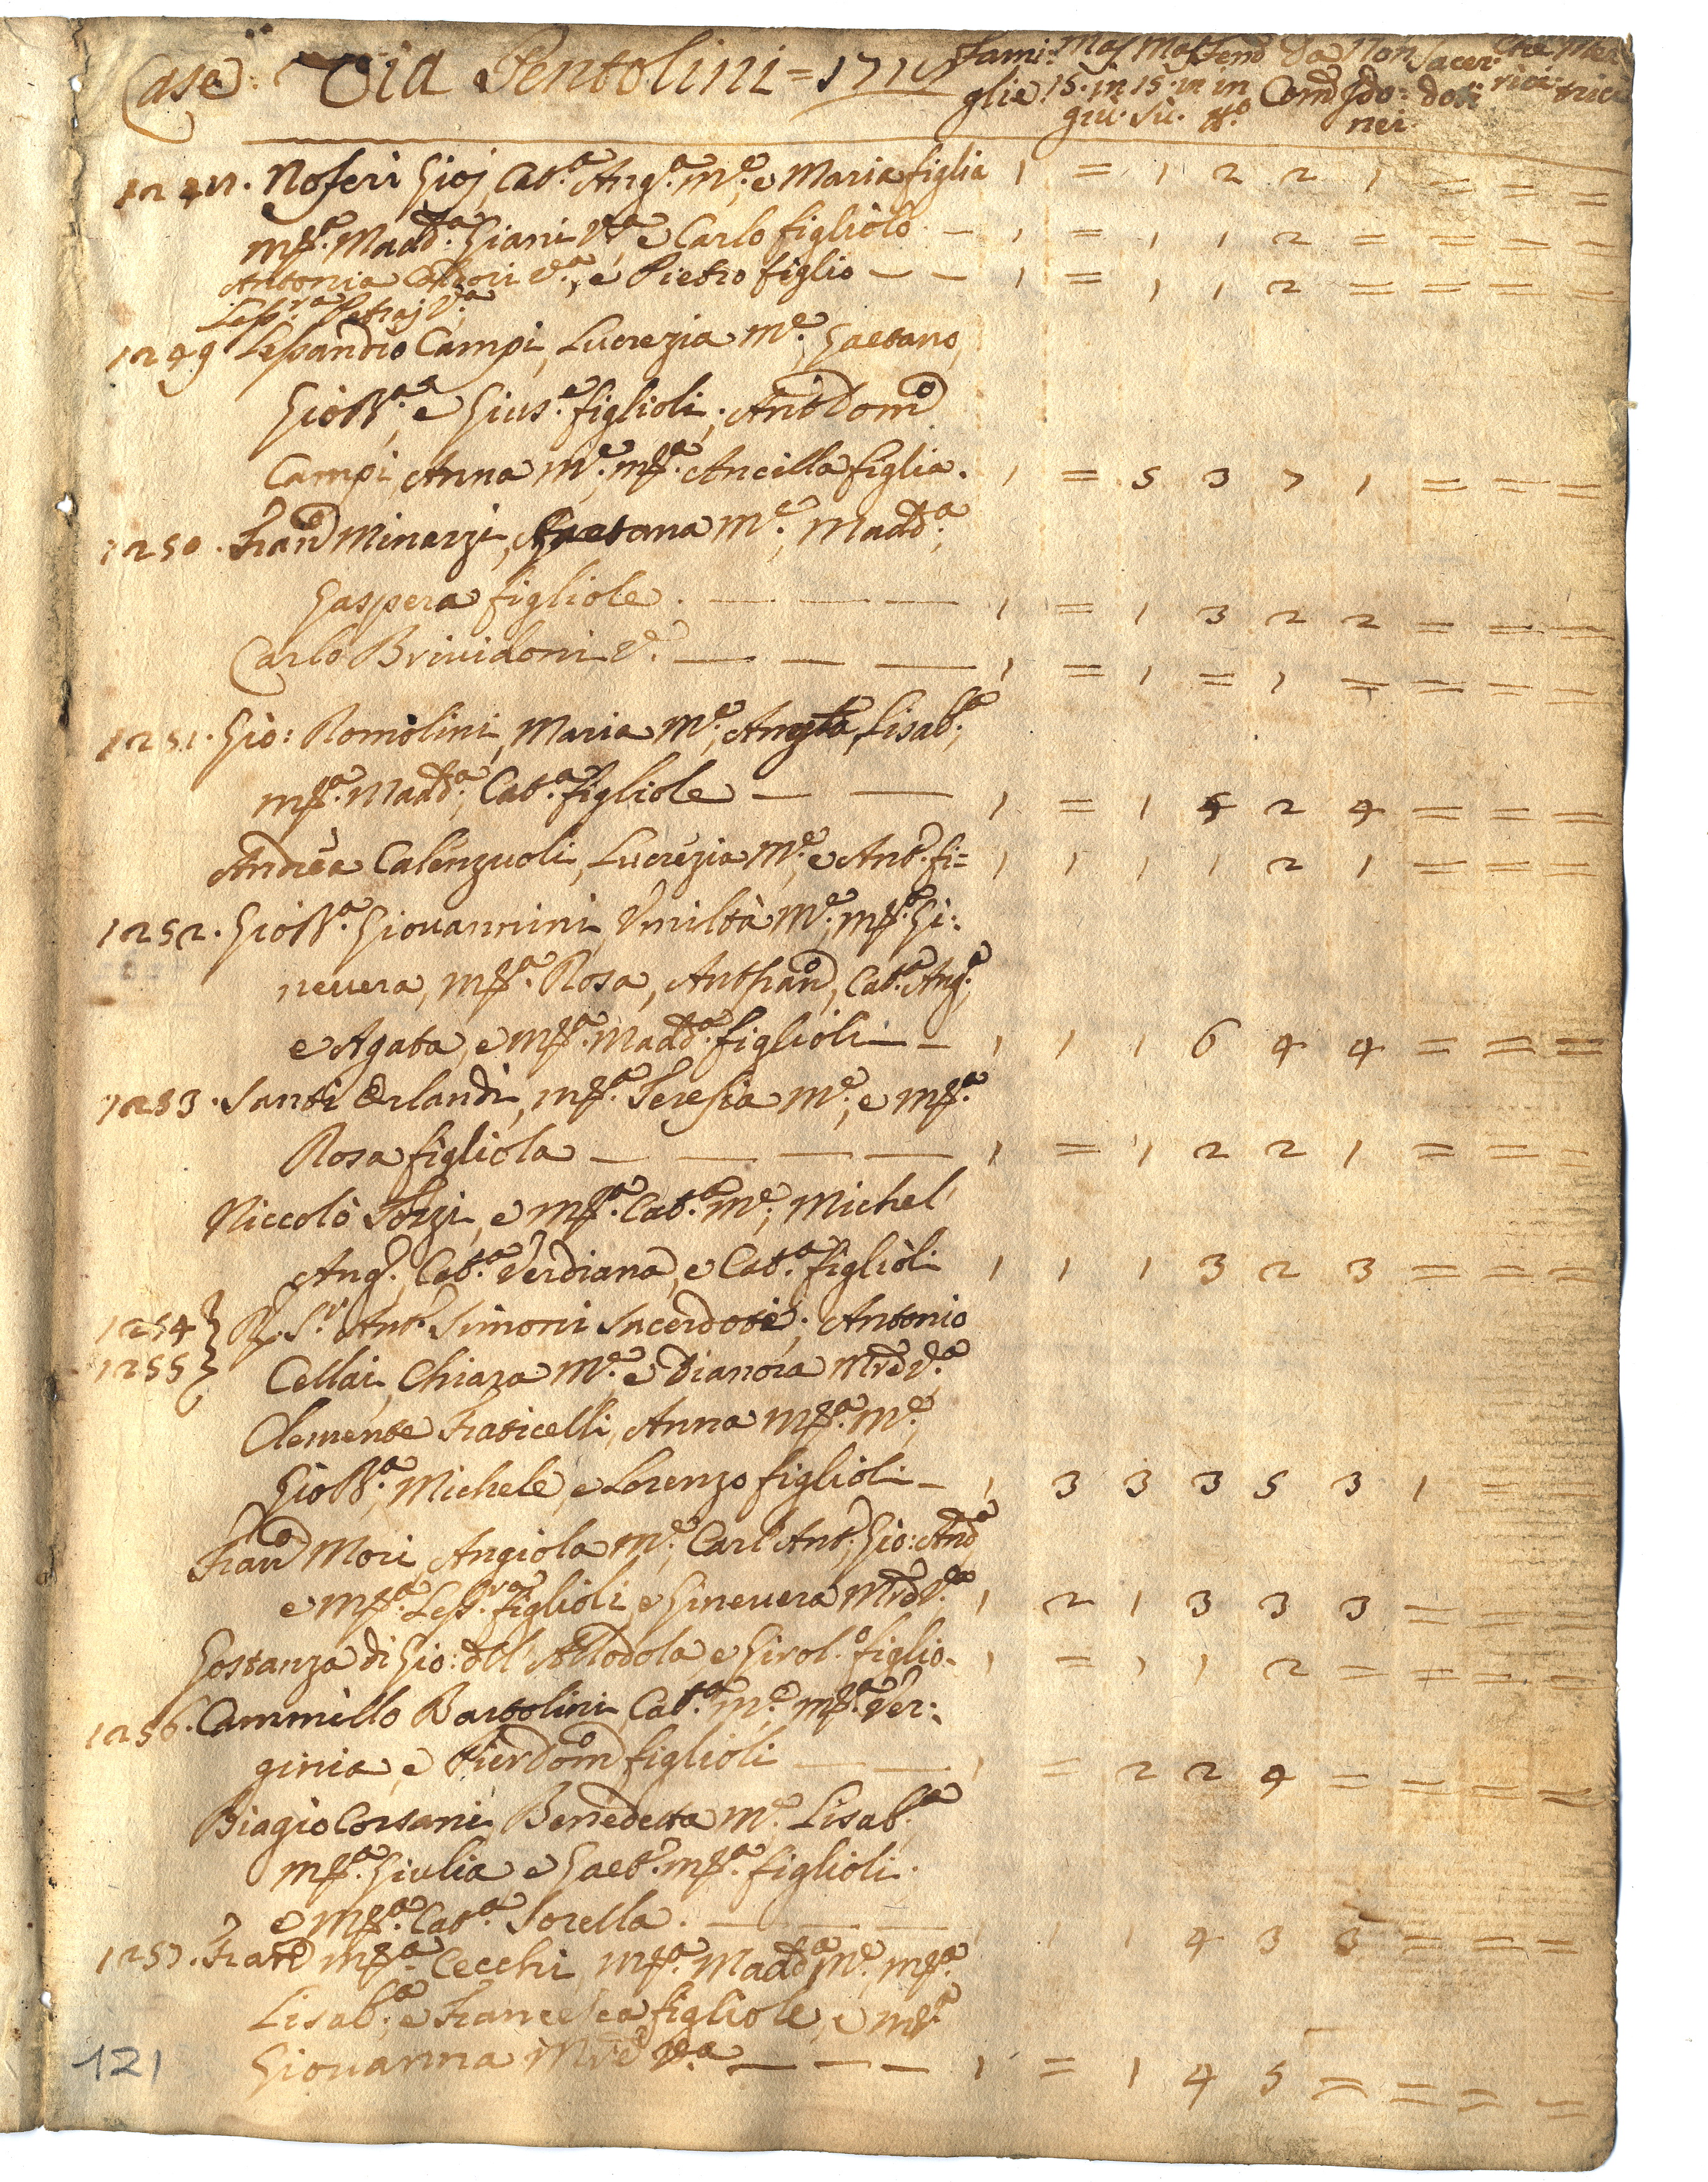 Case: Via Pentolini = 171
Fami: Mas Mas Fem Da Non Sacer: Che Mer
glie 15. in 15. in in Com Ido: doti rici trici
giù. Sù. nei.
Noferi Gioj, Cat.a Ang.a M.e, e Maria figlia 1 = 1 2 2 1 = = =
M.a Madd.a Giani V.a e Carlo figliolo — 1 = 1 1 2 = = = =
Antonia V.a, e Pietro figlio — — 1 = 1 1 2 = = = =
V.a
1249 Lessandro Campi, Lucrezia M.e, Gaetano,
Gio B.a, e Gius.e figlioli; Ant Dom.o
Campi, Anna M.e, M.a Ancilla figlia. 1 = 5 3 7 1 = = =
1250. Fran.o Minarzi, Gaetana M.e, Madd.a,
Gaspera figliole. — — — 1 = 1 3 2 2 = = =
Carlo Brividoni V.o — — — 1 = 1 = 1 = = = =
1251. Gio: Romolini, Maria M.e, Ang.la, Lisab.a,
M.a Madd.a, Cat.a figliole — — 1 = 1 5 2 4 = = =
Andrea Calenzuoli, Lucrezia M.e, e Ant.o fi= 1 1 1 1 2 1 = = =
1252. Gio B.a Giovannini, Umiltà M.e, M.a Gi:
nevera, M.a Rosa, Ant Fran.o, Cat.a Ang.a
e Agata, e M.a Madd.a figlioli — 1 1 1 6 4 4 = = =
1253. Santi Orlandi, M.a Teresia M.e, e M.a
Rosa figliola — — — — 1 = 1 2 2 1 = = =
Niccolò Tozzi, e M.a Cat.a M.e, Michel
Ang.o, Cat.a Verdiana, e Cat.a figlioli 1 1 1 3 2 3 = = =
1254 } R. S.r Ant.o Simoni Sacerdote; Antonio
1255 } Cellai, Chiara M.e e Dianora M.re V.a
Clemente Fraticelli, Anna M.a M.e,
Gio B.a, Michele, e Lorenzo figlioli — 1 3 3 3 5 3 1 = =
Fran.o Mori, Angiola M.e, Carl'Ant.o, Gio: And.a
e M.a Less.ra figlioli, e Ginevera M.re V.a 1 2 1 3 3 3 = = =
Gostanza di Gio: dell'Allodola e Girol.o figlio. 1 = 1 1 2 = = = =
1256. Cammillo Bartolini, Cat.a M.e, M.a Ver:
ginia, e Pier Dom.o figlioli — — 1 = 2 2 4 = = = =
Biagio Corsani, Benedetta M.e, Lisab.a,
M.a Giulia e Gaet.o M.a figlioli.
e M.a Cat.a Sorella. — — — 1 1 1 4 3 3 = = =
1257. Fran.o M.a Cecchi, M.a Madd.a M.e, M.a
Lisab.a, e Francesca figliole, e M.a
Giovanna M.re V.a — — — 1 = 1 4 5 = = = =
121